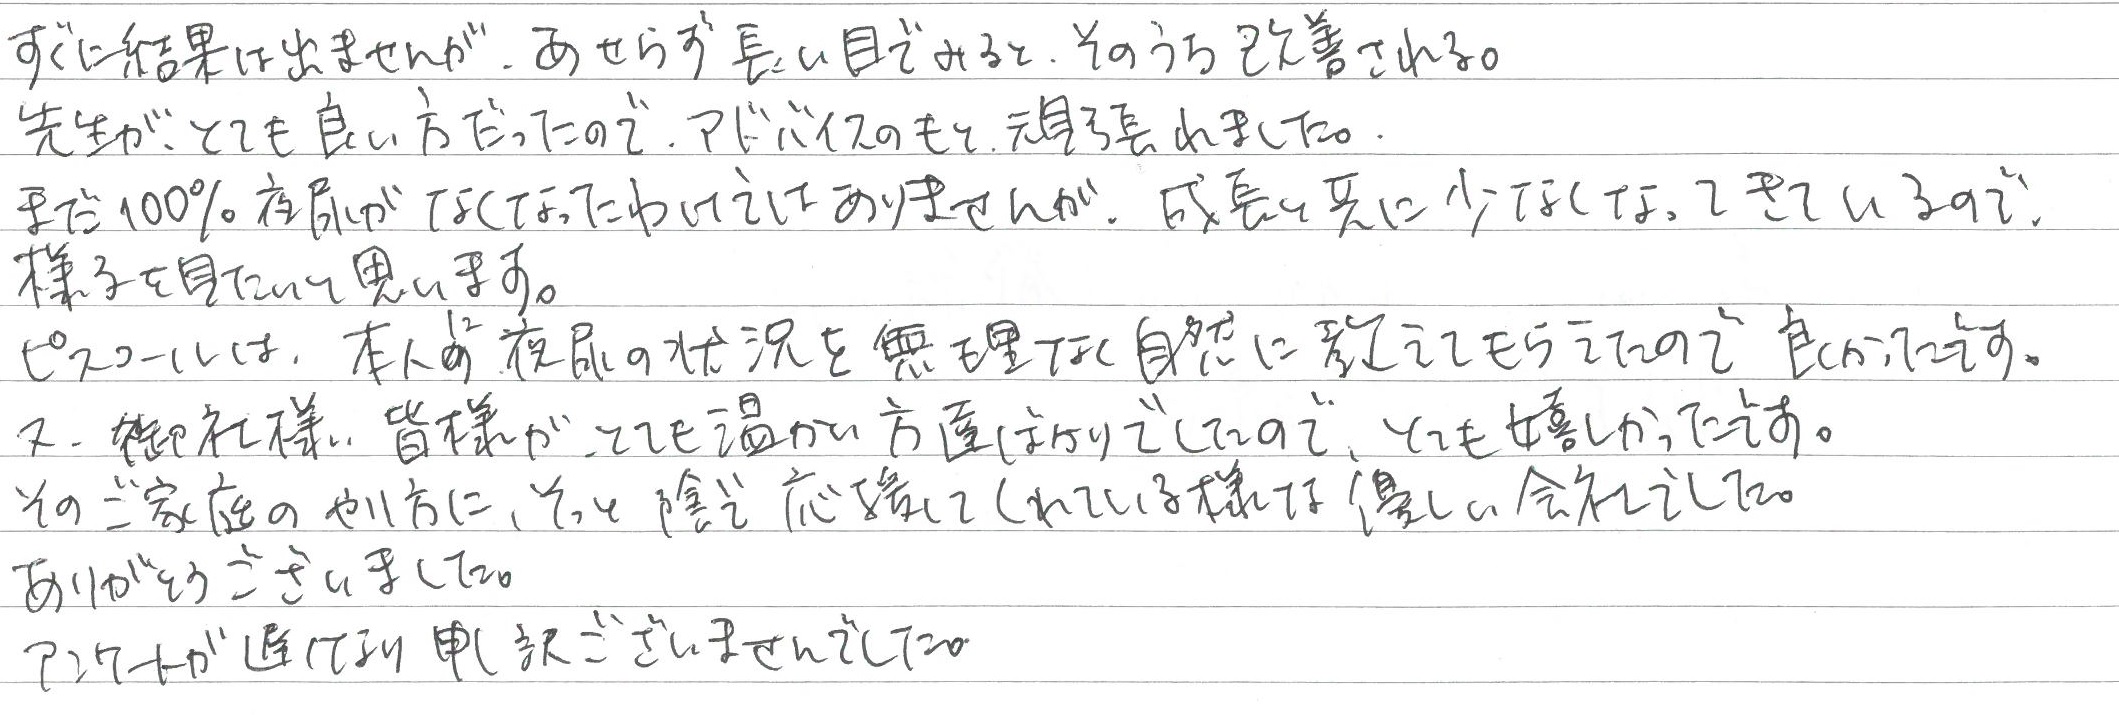 すぐに結果は出ませんが、あせらず長い目でみると、そのうち改善される。
先生が、とても良い方だったので、アドバイスのもと、頑張れました。
まだ100%夜尿がなくなったわけではありませんが、成長と共に少なくなってきているので、
様子を見たいと思います。
ピスコールは、本人に夜尿の状況を無理なく自然に教えてもらえたので良かったです。
又、御社様、皆様が、とても温かい方達ばかりでしたので、とても嬉しかったです。
そのご家庭のやり方に、そっと陰で応援してくれている様な優しい会社でした。
ありがとうございました。
アンケートが遅くなり申し訳ございませんでした。